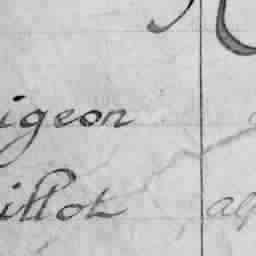 igeon
illot al